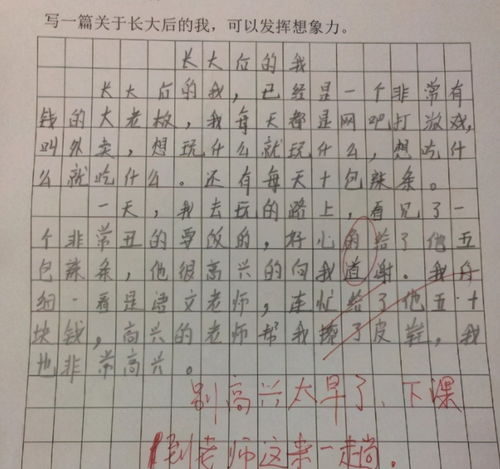 写一篇关于长大后的我,可以发挥想象力。
长大后的我
长大后的我,已经是一个非常有
钱的大老板,我每天都是网吧打游戏,
叫外卖,想玩什么就玩什么,想吃什
么就吃什么。还有每天十包辣条。
一天,我去玩的路上,看见了一
个非常丑的要饭的,好心的给了他五
包辣条,他很高兴的向我道谢。我仔
细一看是语文老师,连忙给了他五十
块钱,高兴的老师帮我擦了皮鞋,我
也非常高兴。
别高兴太早了、下课
到老师这来一趟.